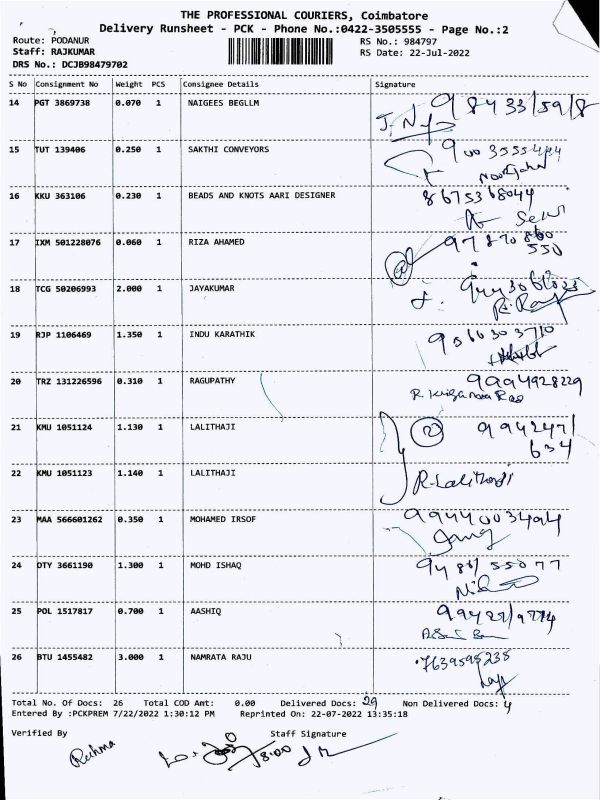 THE PROFESSIONAL COURIERS, Coimbatore
Delivery Runsheet - PCK - Phone No.:0422-3505555 - Page No.:2
Route: PODANUR
RS No.: 984797
Staff: RAJKUMAR
RS Date: 22-Jul-2022
DRS No.: DCJB98479702
S No Consignment No Weight PCS Consignee Details Signature
14 PGT 3869738 0.070 1 NAIGEES BEGLLM
15 TUT 139406 0.250 1 SAKTHI CONVEYORS
Noorjahan
16 KKU 363106 0.230 1 BEADS AND KNOTS AARI DESIGNER 8675368044
Selvi
17 IXM 501228076 0.060 1 RIZA AHAMED 97870860
550
18 TCG 50206993 2.000 1 JAYAKUMAR
19 RJP 1106469 1.350 1 INDU KARATHIK 9566303710
20 TRZ 131226596 0.310 1 RAGUPATHY 9994928229
21 KMU 1051124 1.130 1 LALITHAJI 2 994247
634
22 KMU 1051123 1.140 1 LALITHAJI R-Lalithaji
23 MAA 566601262 0.350 1 MOHAMED IRSOF 9944003494
24 OTY 3661190 1.300 1 MOHD ISHAQ
25 POL 1517817 0.700 1 AASHIQ
26 BTU 1455482 3.000 1 NAMRATA RAJU 7639595235
Total No. Of Docs: 26 Total COD Amt: 0.00 Delivered Docs: Non Delivered Docs: 4
Entered By :PCKPREM 7/22/2022 1:30:12 PM Reprinted On: 22-07-2022 13:35:18
Verified By Staff Signature
Rekhma 8:00